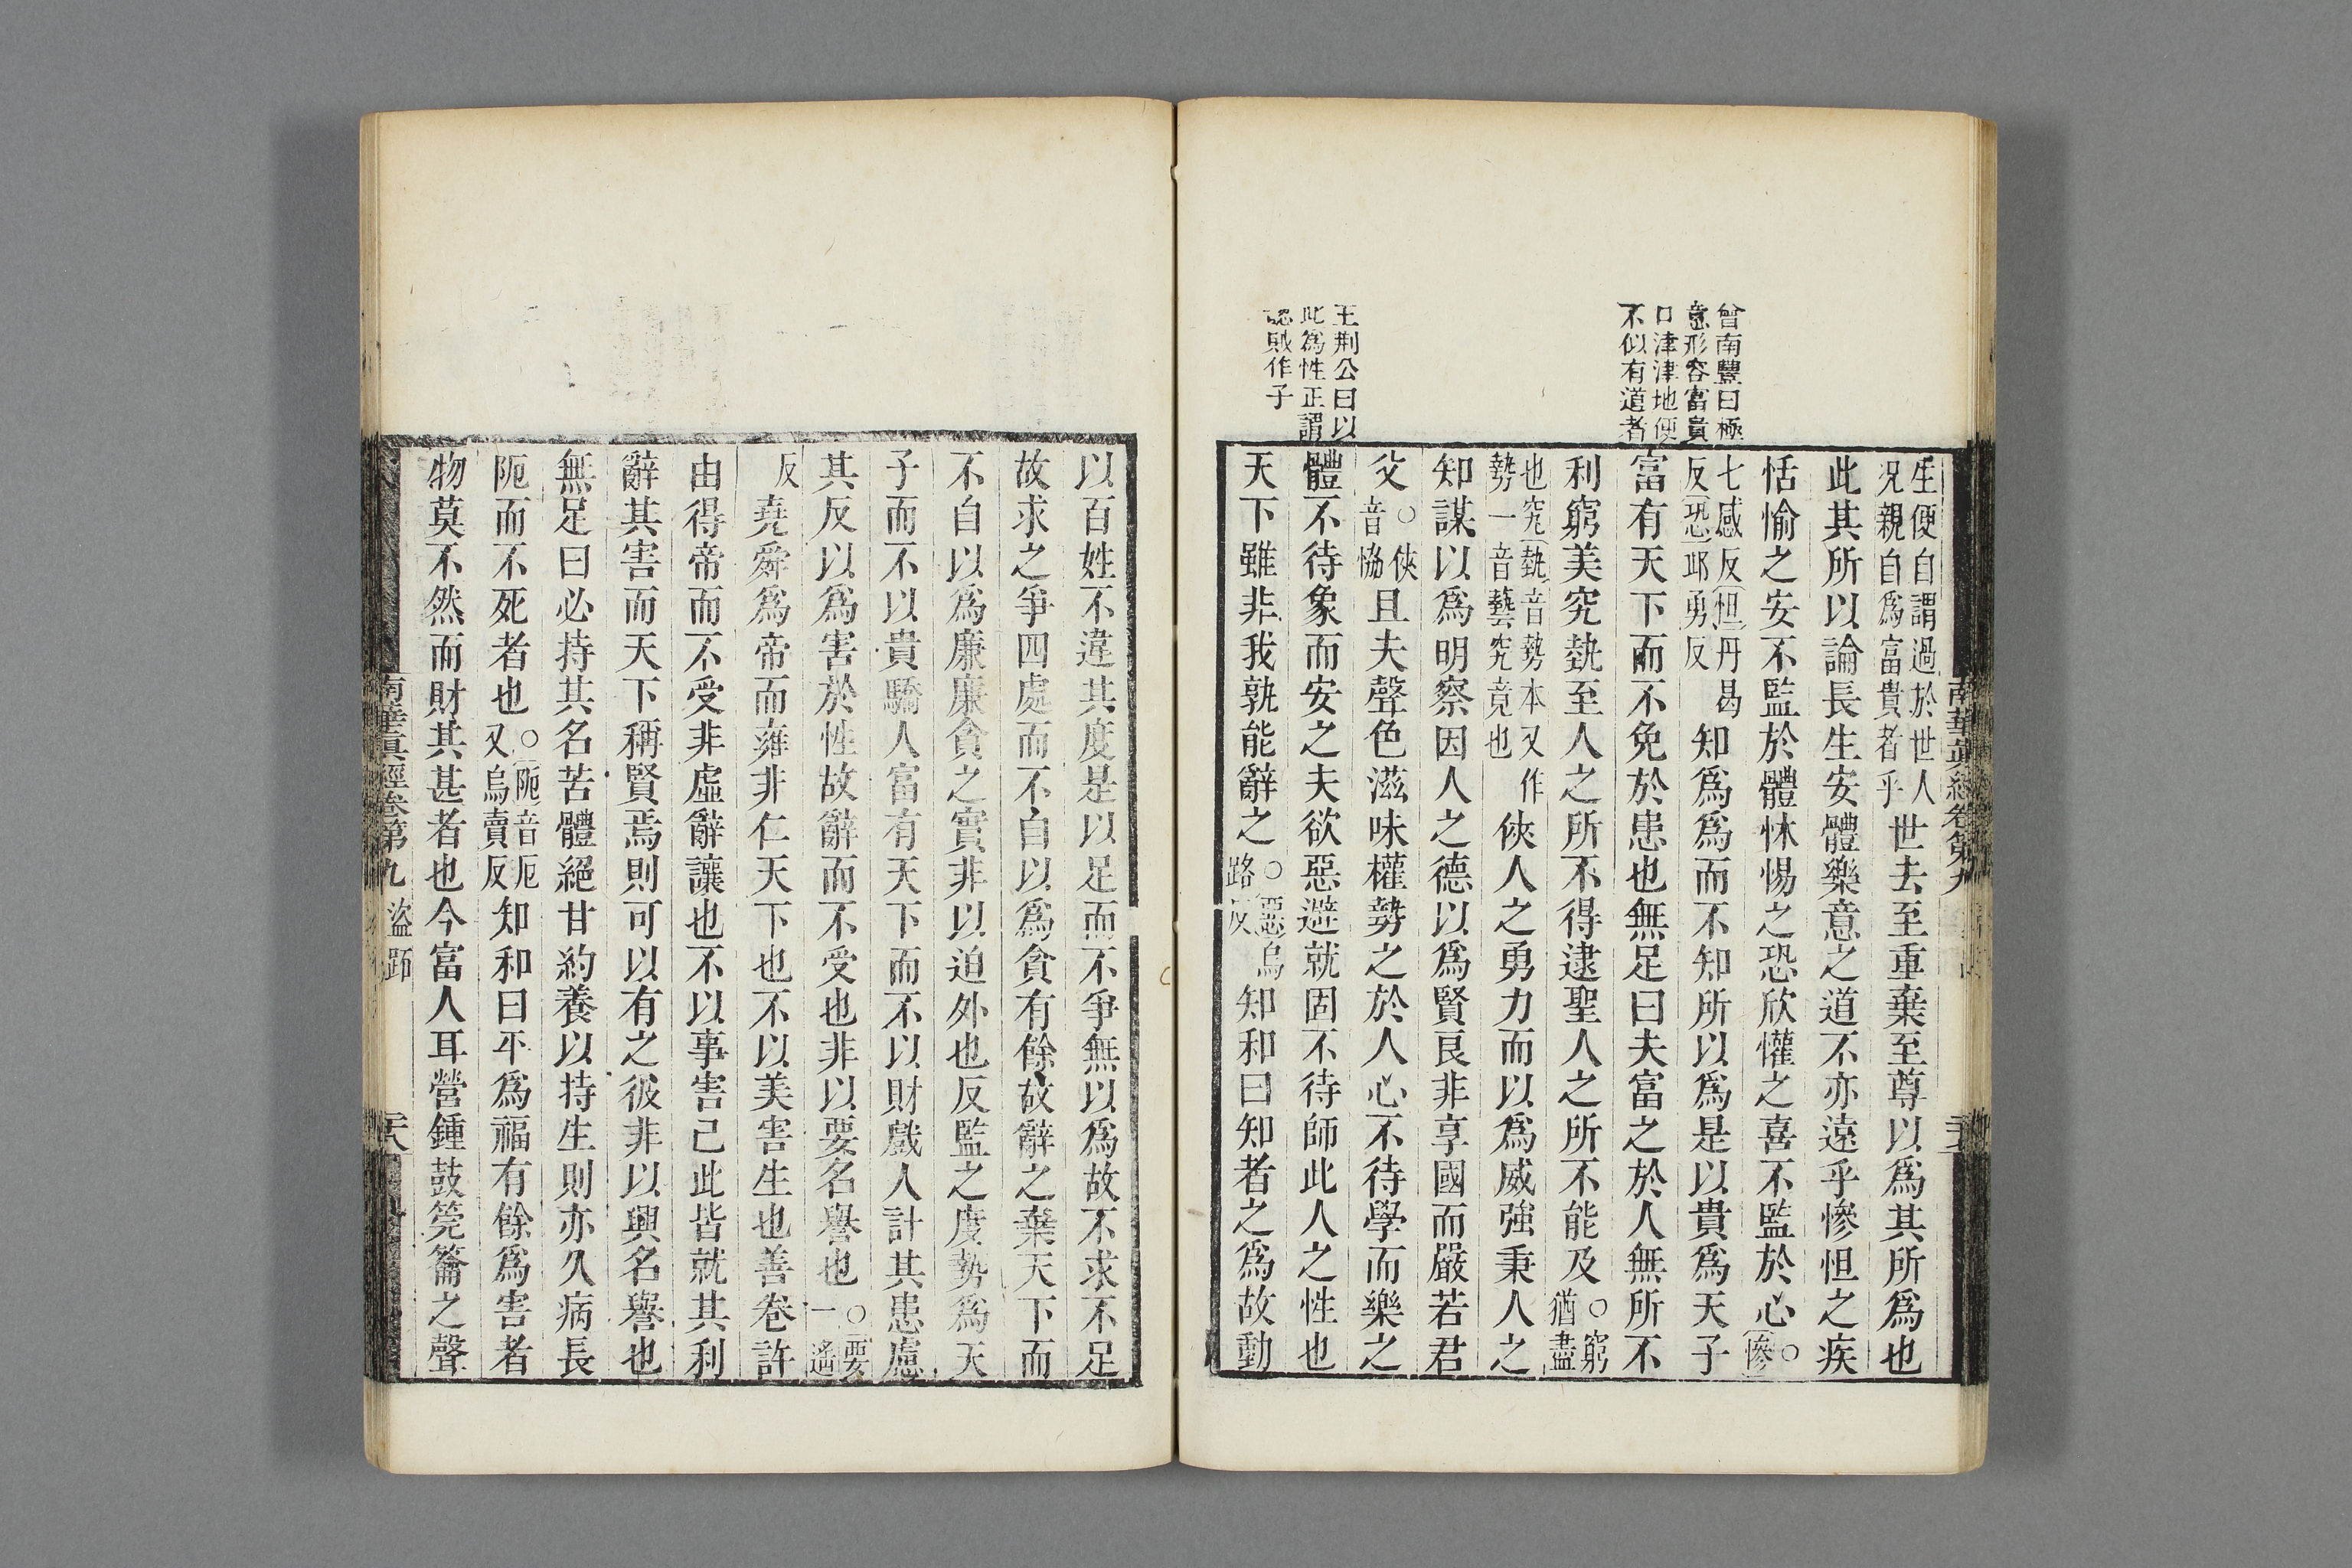 曾南豐曰極
意形容富貴
口津津地便
不似有道者
王荆公曰以
此爲性正謂
認賊作子
生便自謂過於世人
况親自爲富貴者乎
世去至重棄至尊以爲其所爲也
此其所以論長生安體樂意之道不亦遠乎慘怛之疾
恬愉之安不監於體怵惕之恐欣懽之喜不監於心○慘
七感反怛丹曷
反恐邱勇反
知爲爲而不知所以爲是以貴爲天子
富有天下而不免於患也無足曰夫富之於人無所不
利窮美究埶至人之所不得逮聖人之所不能及○窮
猶盡
也究埶音勢本又作
勢一音藝究竟也
俠人之勇力而以爲威強秉人之
知謀以爲明察因人之德以爲賢良非享國而嚴若君
父○俠
音恊
且夫聲色滋味權勢之於人心不待學而樂之
體不待象而安之夫欲惡避就固不待師此人之性也
天下雖非我孰能辭之○惡烏
路反
知和曰知者之爲故動
南華眞經卷第九
二十五
以百姓不違其度是以足而不爭無以爲故不求不足
故求之爭四處而不自以爲貪有餘故辭之棄天下而
不自以爲廉廉貪之實非以迫外也反監之度勢爲天
子而不以貴驕人富有天下而不以財戲人計其患慮
其反以爲害於性故辭而不受也非以要名譽也○要
一遙
反
堯舜爲帝而雍非仁天下也不以美害生也善卷許
由得帝而不受非虛辭讓也不以事害己此皆就其利
辭其害而天下稱賢焉則可以有之彼非以興名譽也
無足曰必持其名苦體絕甘約養以持生則亦久病長
阨而不死者也○阨音厄
又烏賣反
知和曰平爲福有餘爲害者
物莫不然而財其甚者也今富人耳營鍾鼓筦籥之聲
南華眞經卷第九 盜跖
二十六